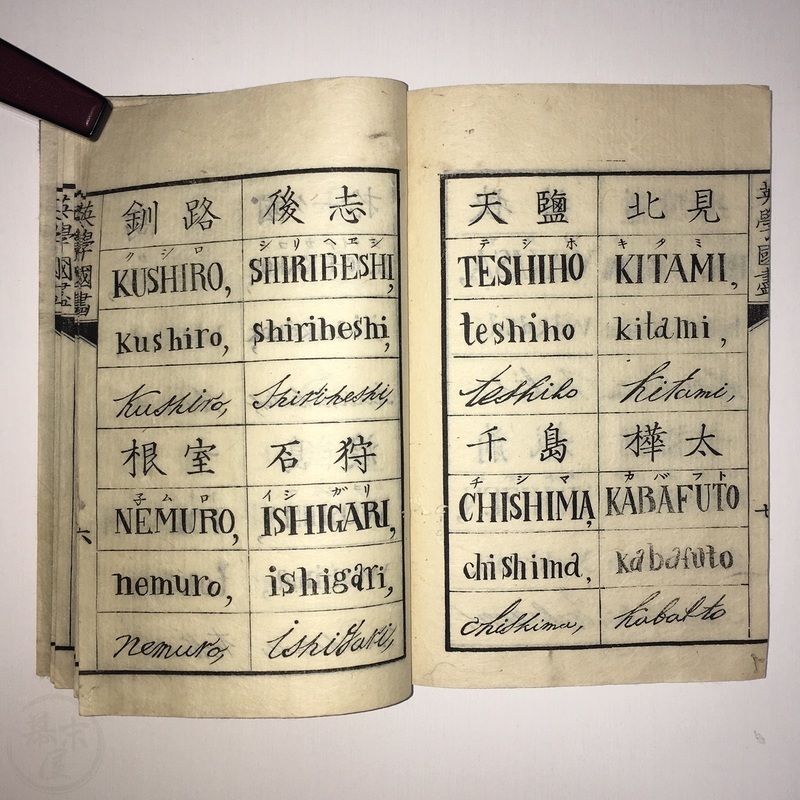 釧路 後志
クシロ シリヘヱシ
KUSHIRO, SHIRIBESHI,
kushiro, shiribeshi,
kushiro, Shiribeshi,
根室 石狩
子ムロ イシガリ
NEMURO, ISHIGARI,
nemuro, ishigari,
nemuro, ishigari,
六
天鹽 北見
テシホ キタミ
TESHIHO KITAMI,
teshiho kitami,
teshiho kitami,
千島 樺太
チシマ カバフト
CHISHIMA, KABAFUTO
chishima, kabafuto
chishima,
英學國盡
七